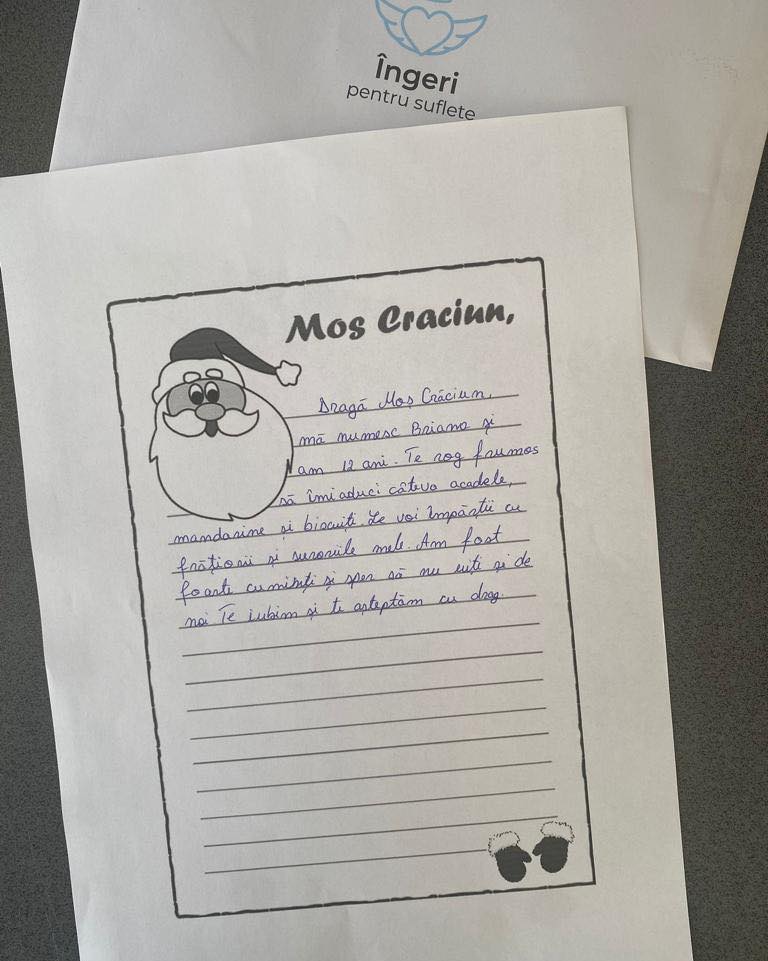 Îngeri
pentru suflete
Mos Craciun,
Dragă Moș Crăciun,
mă numesc Briana și
am 12 ani. Te rog frumos
să îmi aduci câteva acadele,
mandarine și biscuiți. Le voi împărții cu
frățiorii și surorile mele. Am fost
foarte cuminți și sper să nu uiți și de
noi Te iubim și te așteptăm cu drag.